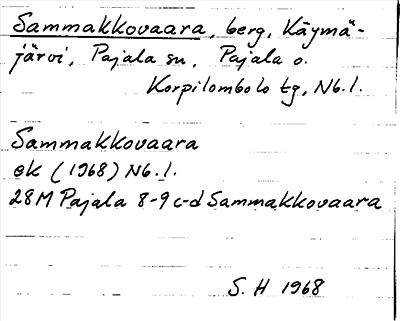 Sammakkovaara, berg, Käymä-
järvi, Pajala sn, Pajala o.
Korpilombolo tg, Nb. l.
Sammakkovaara
ek (1968) Nb. l.
28M Pajala 8-9 c-d Sammakkovaara
S. H 1968